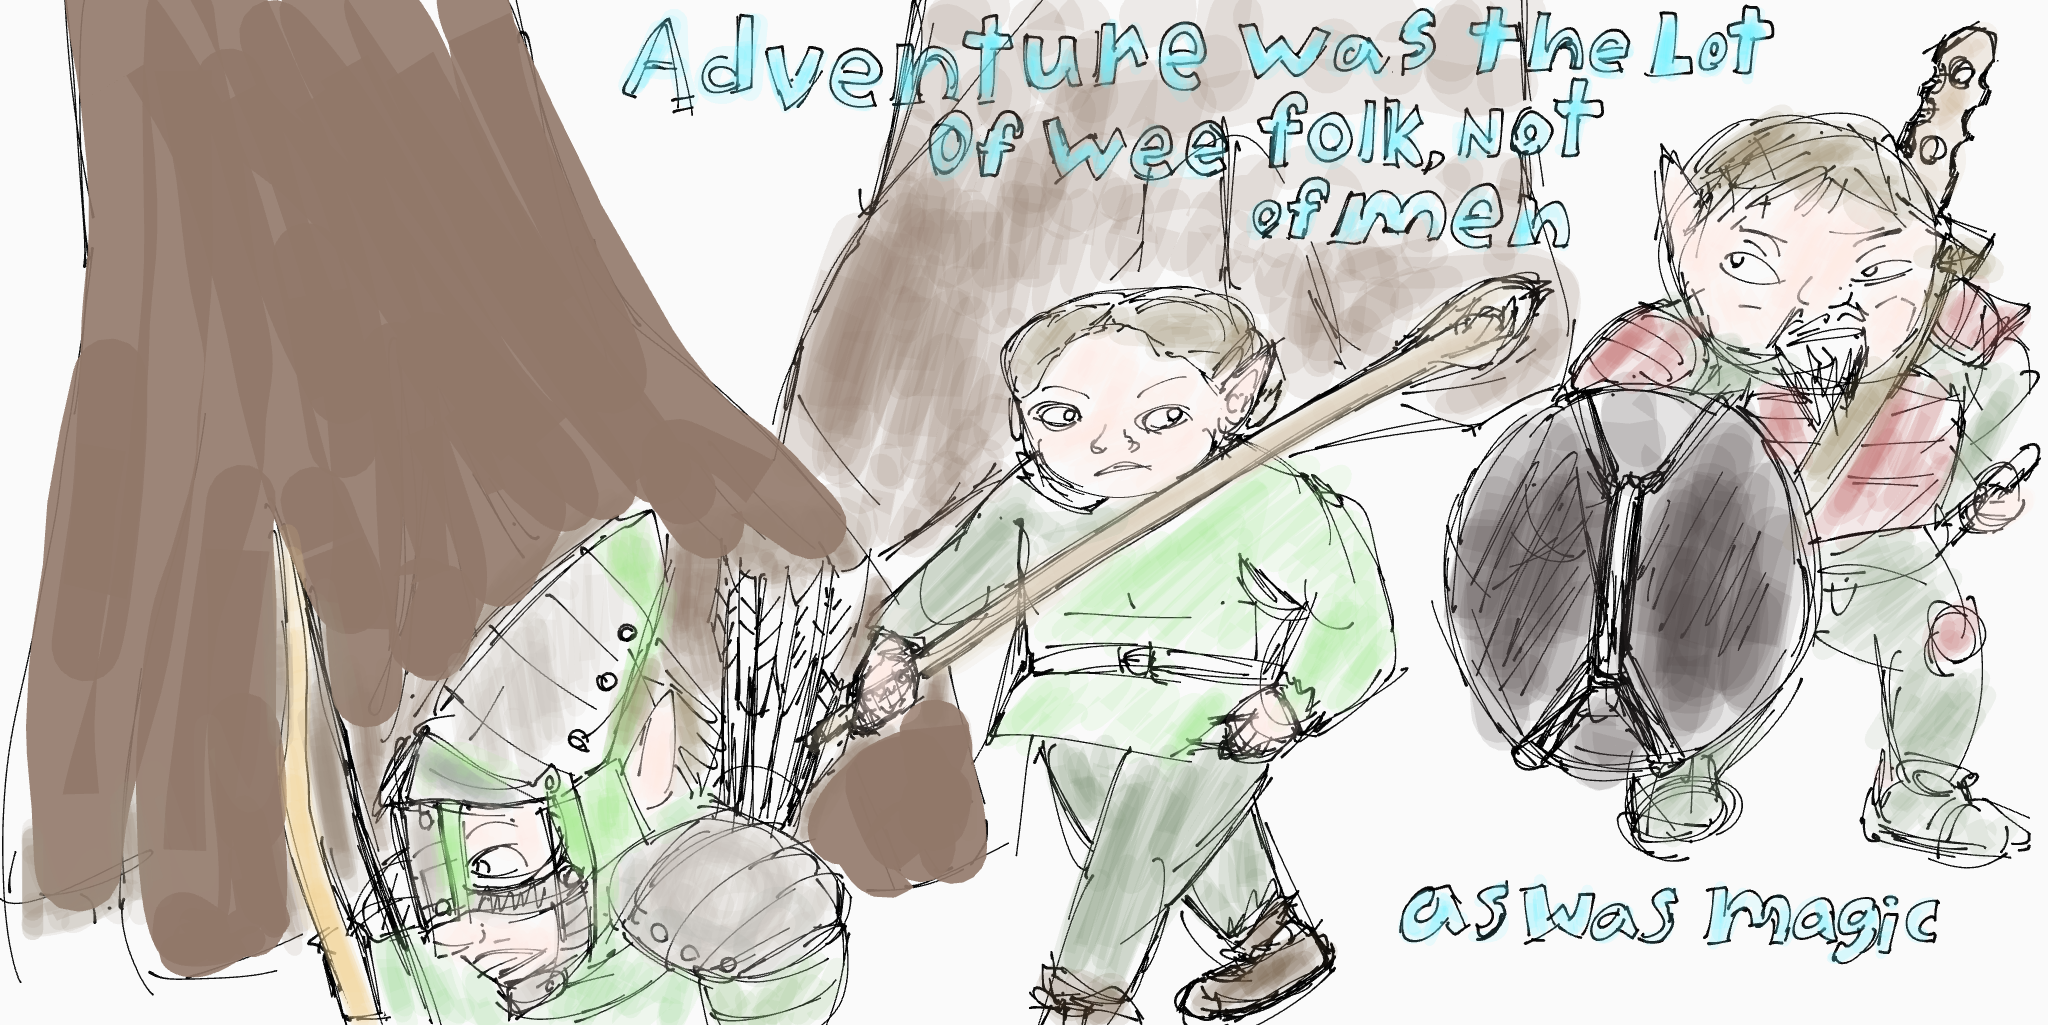 Adventure was the Lot
of wee folk, Not
of men
as was magic